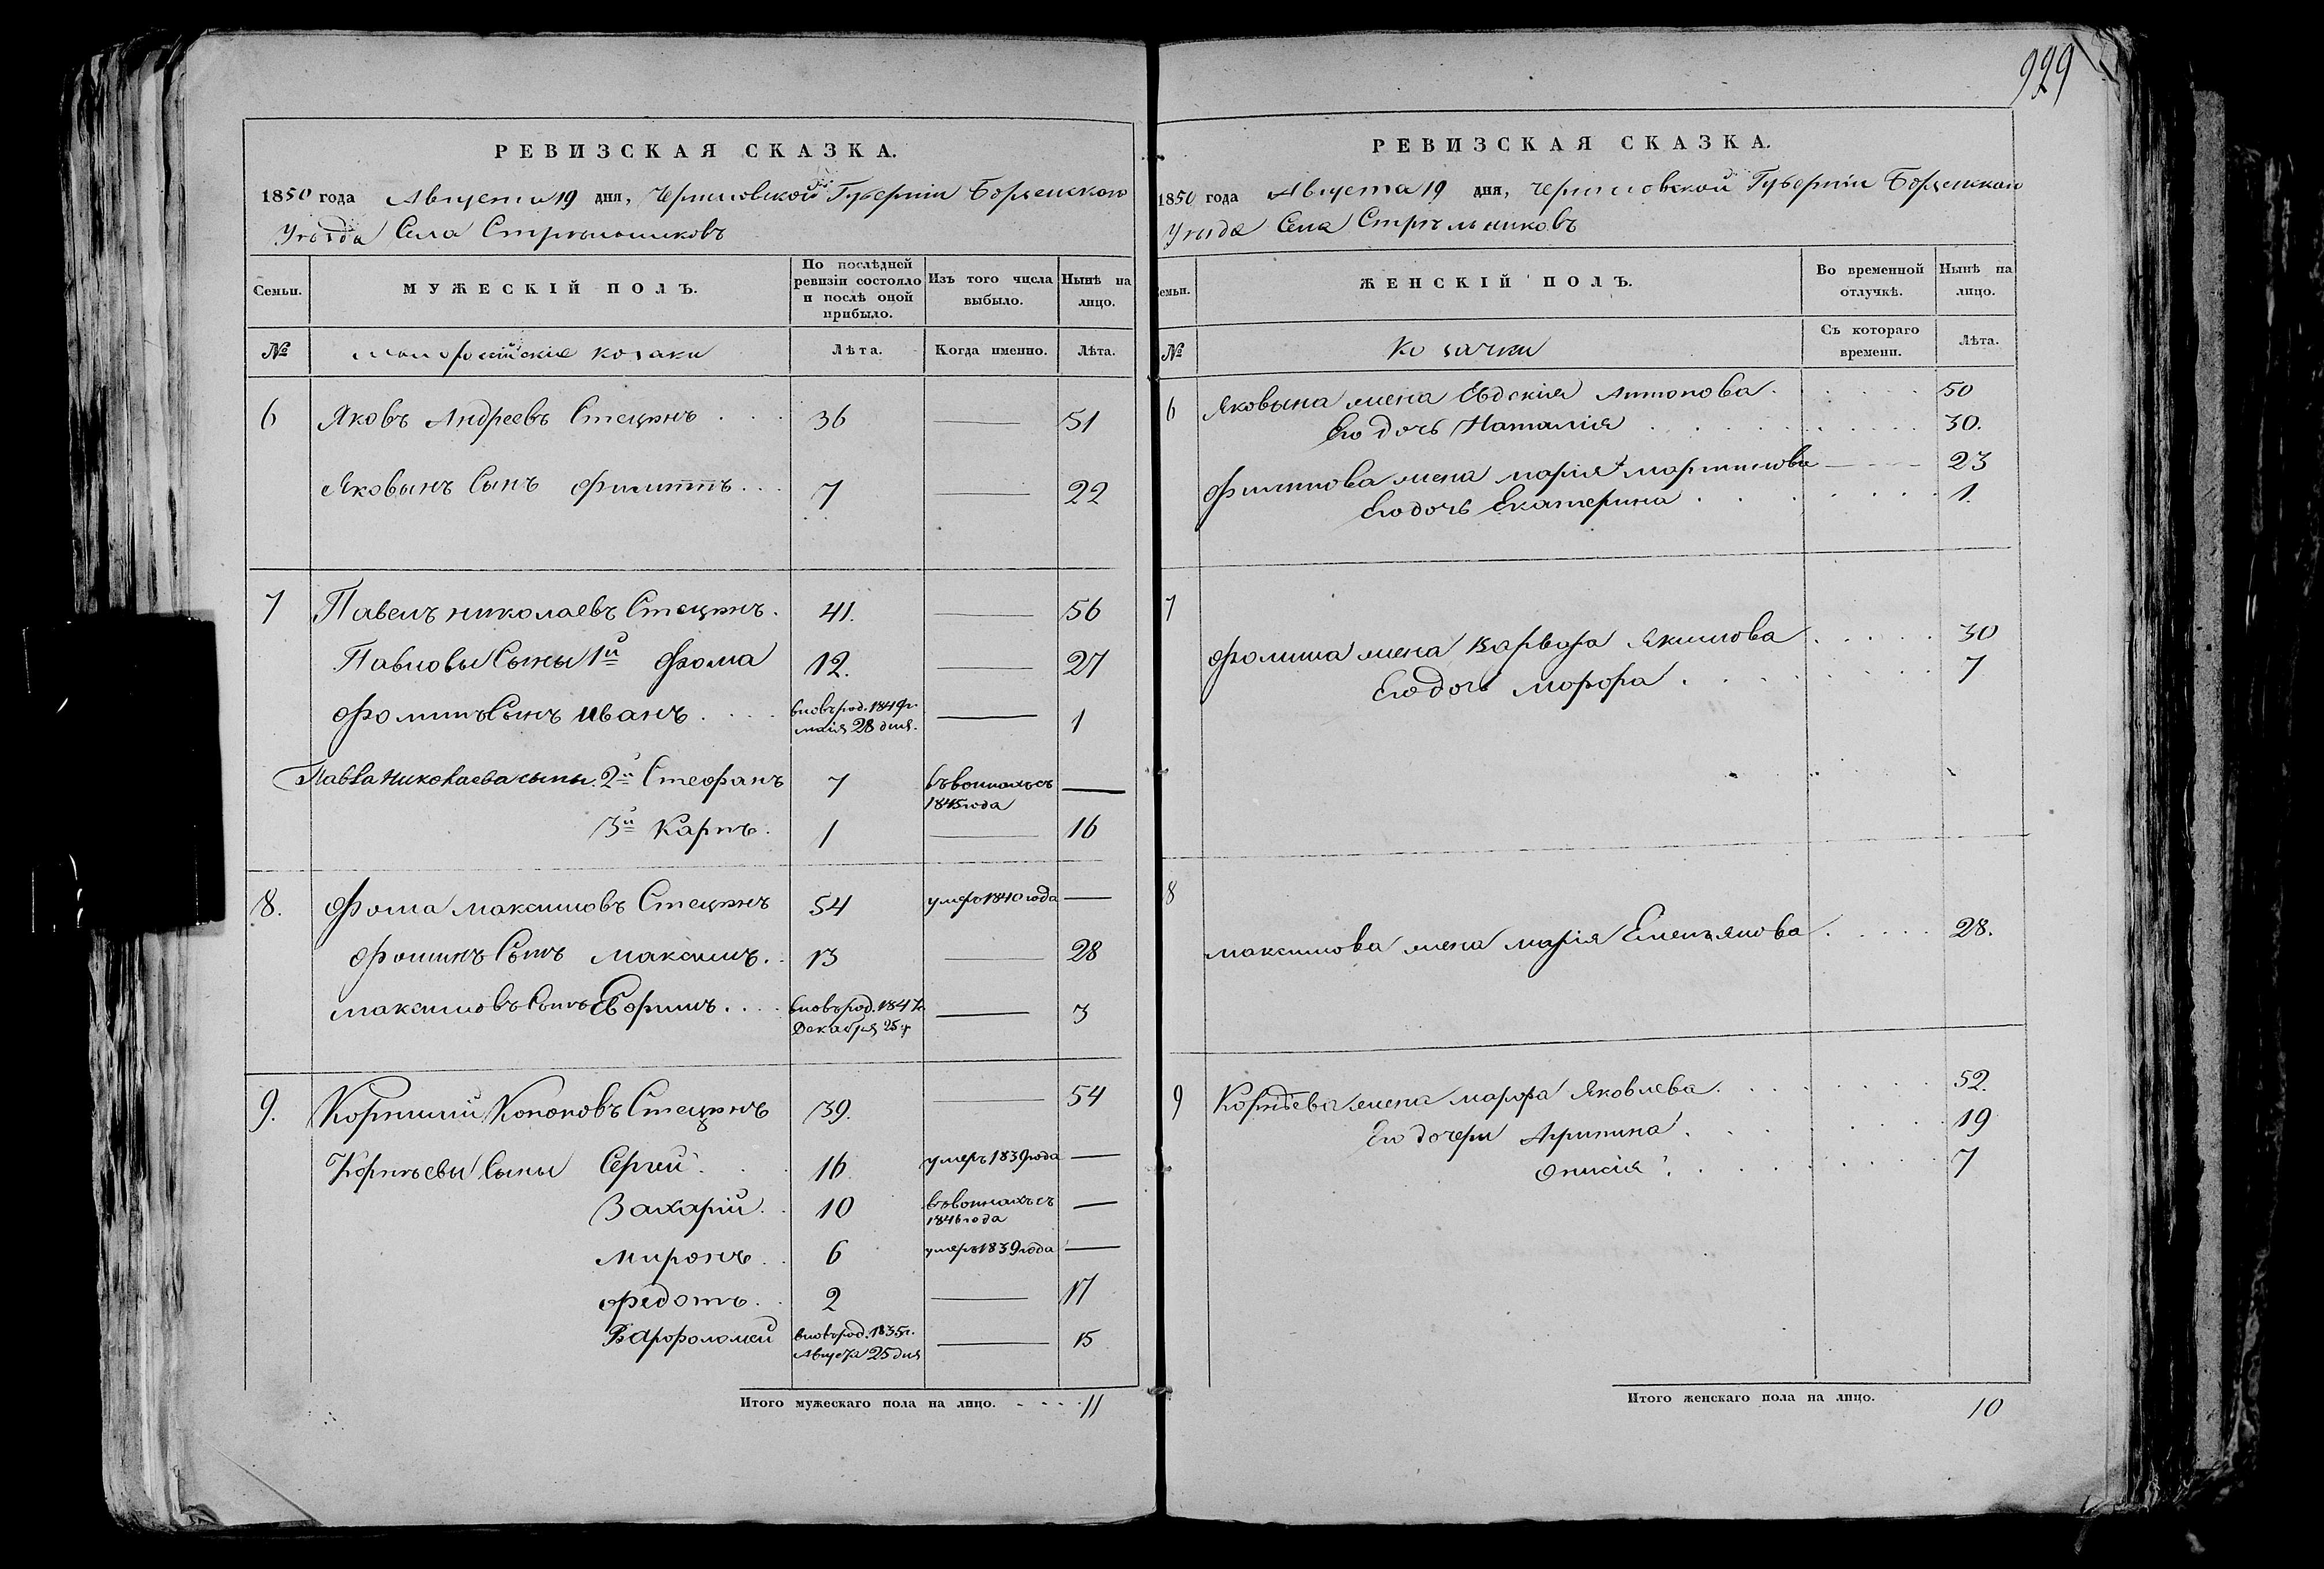 929
РЕВИЗСКАЯ СКАЗКА.
1850 года Августа 19 дня, Черниговской Губерніи Борзенскаго
Уѣзда Села Стрѣльниковъ
Семьи.
МУЖЕСКІЙ ПОЛЪ.
По послѣдней ревизіи состояло и послѣ оной прибыло.
Изъ того числа выбыло.
Нынѣ на лицо.
№ малоросійскіе козаки Лѣта. Когда именно. Лѣта.
6 Яковъ Андреевъ Стецюнъ . . . 36 — 51
Яковынъ Сынъ Филиппъ . . . 7 — 22
7 Павелъ николаевъ Стецюнъ . 41. — 56
Павловы Сыны 1й Фома 12. — 27
Фоминъ Сынъ иванъ . . . . вновь род. 1849 г. маія 28 дня. — 1
Павла Николаева сыны. 2й Стефанъ 7 въ воинахъ съ 1845 года —
3й Карпъ . 1 — 16
8. Фома максимовъ Стецюнъ 54 умеръ 1840 года —
Фоминъ Сынъ максимъ . . 13 — 28
максимовъ Сынъ Ефримъ . . . . вновь род. 1847 г. Декабря 25 д — 3
9. Корнилій Кононовъ Стецюнъ 39. — 54
Корнѣевы Сыны Сергій . . . 16 умеръ 1839 года —
Захарій . . 10 въ воинахъ съ 1846 года —
миронъ . . 6 умеръ 1839 года —
федотъ . . 2 — 17
Варфоломей вновь род. 1835 г. Августа 25 дня — 15
Итого мужескаго пола на лицо. - - - . 11
РЕВИЗСКАЯ СКАЗКА.
1850 года Августа 19 дня, Черниговской Губерніи Борзенскаго
Уѣзда Села Стрѣльниковъ
Семьи.
ЖЕНСКІЙ ПОЛЪ.
Во временной отлучкѣ.
Нынѣ на лицо.
№ Козачки Съ котораго времени. Лѣта.
6 Яковына жена Евдокія Антонова . . . . . 50
Его дочь Наталія . . . . . . . . . . 30.
Филипова жена марія мартинова — — — 23
Его дочь Екатерина . . . . . . . . 1.
7
Фомина жена варвара Якимова . . . . . 30
Его дочь марфа . . . . . . . . . 7
8
максимова жена марія Емельянова . . . . . 28.
9 Корнѣева жена марфа Яковлева . . . . . . . . 52.
Его дочери Агрипина . . . . . . . 19
Онисія . . . . . . . . . 7
Итого женскаго пола на лицо. 10